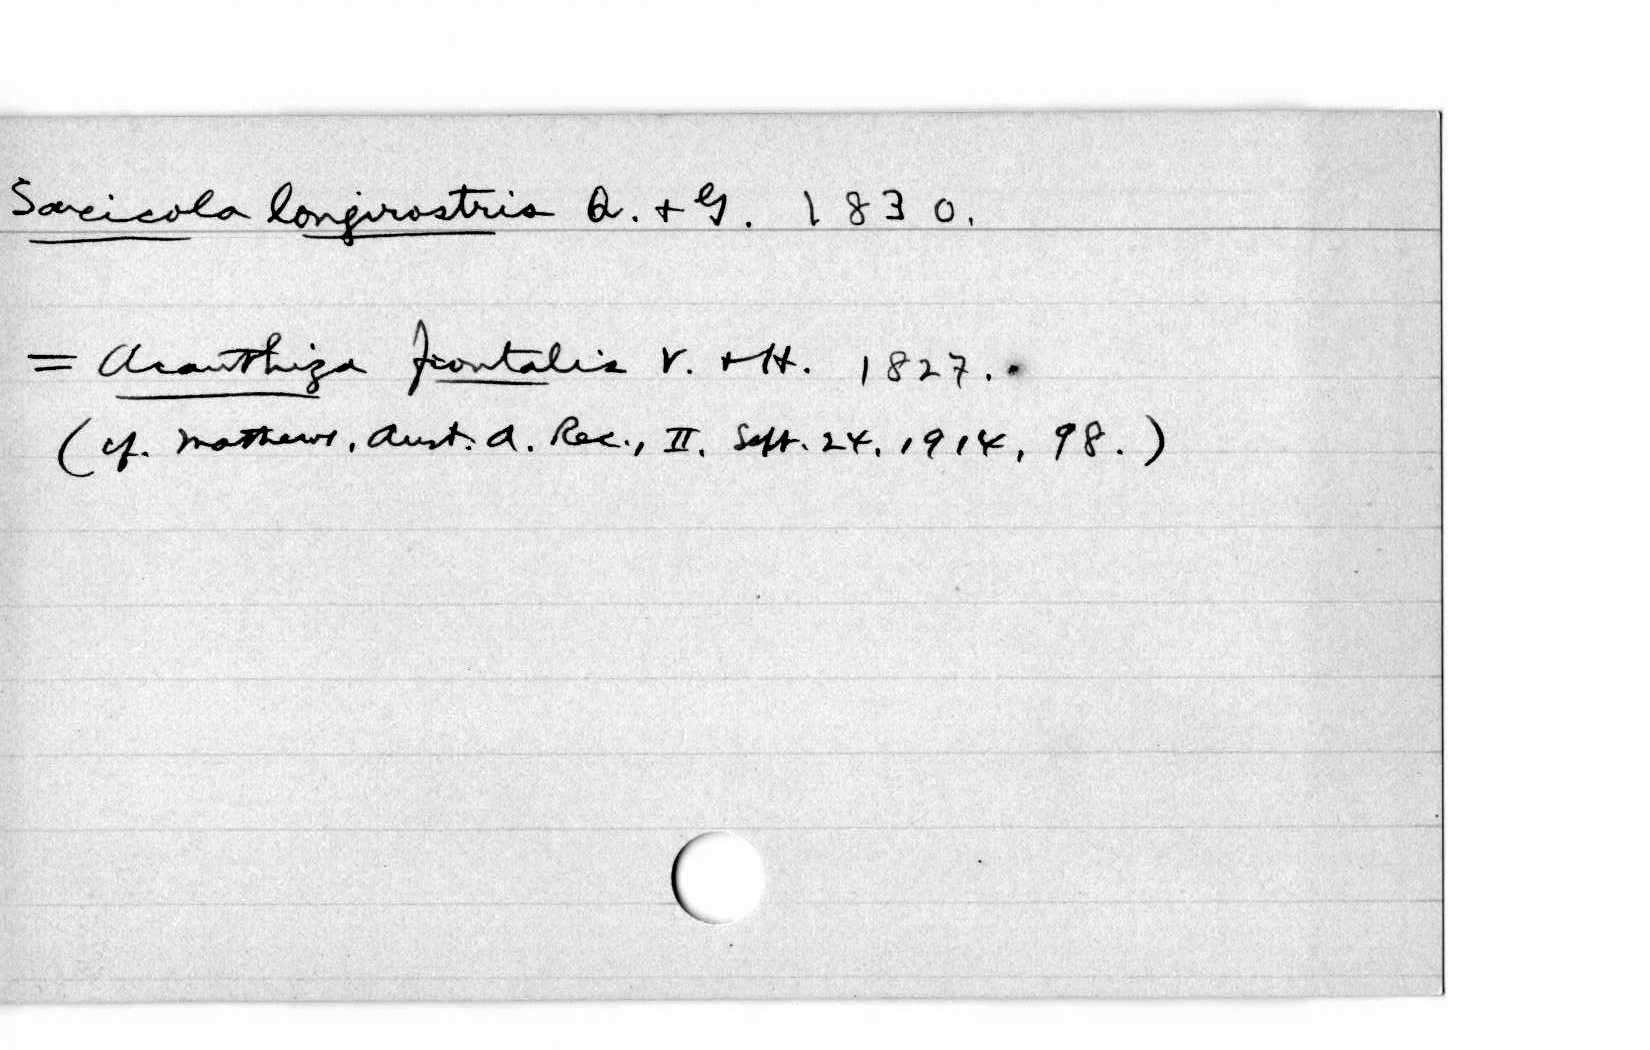 Saxicola longirostris Q. + G. 1830.
= Acanthiza frontalis V. + H. 1827.
(cf. Mathews, Aust. A. Rec., II, Sept. 24, 1914, 98.)